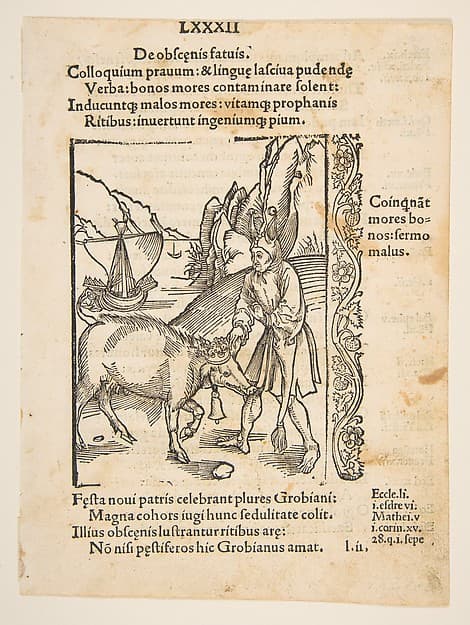 LXXXII
De obscęnis fatuis.
Colloquium prauum: & linguę lasciua pudendę
Verba: bonos mores contaminare solent:
Inducuntqꝫ malos mores: vitamqꝫ prophanis
Ritibus: inuertunt ingeniumqꝫ pium.
Coinqͥnāt
mores bo⸗
nos: sermo
malus.
Fęsta noui patris celebrant plures Grobiani:
Magna cohors iugi hunc sedulitate colit.
Illius obscęnis lustrantur ritibus arę:
Nō nisi pęstiferos hic Grobianus amat.
Eccle.li.
i.esdre vi:
Mathei.v
i.corin.xv.
28.q.i.sepe
l.ii,